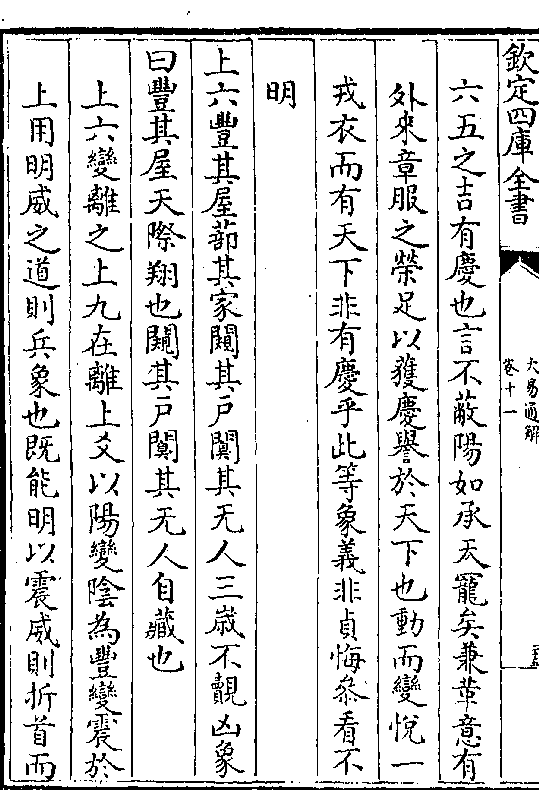 欽定四庫全書
大易通解
卷十一
六五之吉有慶也言不蔽陽如承天寵矣兼章意有
外來章服之榮足以獲慶譽於天下也動而變悅一
戎衣而有天下非有慶乎此等象義非貞悔叅看不
明
上六豐其屋蔀其家闚其戶闃其无人三歳不覿凶象
曰豐其屋天際翔也闚其戶闃其无人自藏也
上六變離之上九在離上爻以陽變陰為豐變震於
上用明威之道則兵象也既能明以震威則折首而